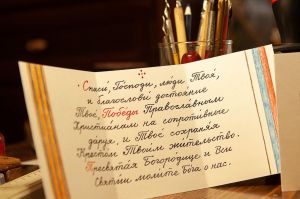 Спаси́, Го́споди, лю́ди Твоя́,
и благослови́ достоя́ние
Твое́, Побе́ды Правосла́вным
Христиа́нам на сопроти́вные
да́руя, и Твое́ сохраня́я
Кресто́м Твои́м жи́тельство.
Пресвята́я Богоро́дице и Вси
Святы́и моли́те Бо́га о нас.